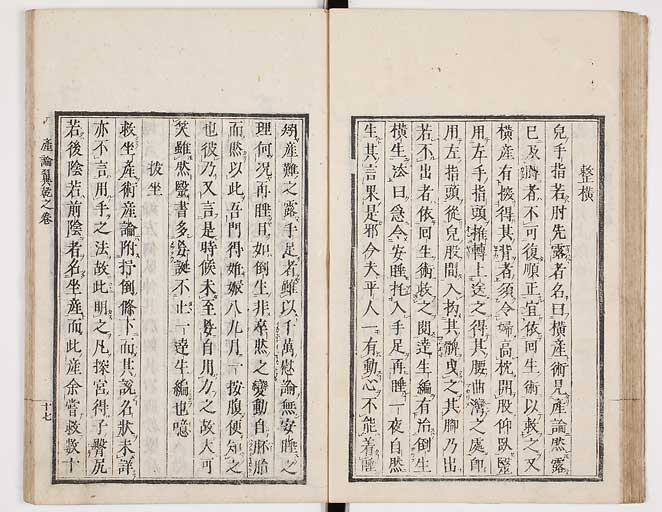 整橫
兒手指若肘先露者名曰橫產術見產論然露
已及濟者不可復順正宜依回生術以救之又
橫產有撥得其背者須令婦高枕開股仰臥醫
用左手指頭推轉上送之得其腰曲灣之處即
用左指頭從兒股間入抅其髀曳之其脚乃出
若不出者依回生術救之閱達生編有治倒生
橫生法曰急令安睡托入手足再睡一夜自然
生其言果是邪今夫平人一有動心不能着睡
況產難之露手足者雖以千萬慰諭無安睡之
理何況再睡且如倒生非卒然之變動自胚胎
而然以此吾門得姙娠八九月一按腹便知之
也彼乃又言是時候未至妄自用力之故大可
笑雖然醫書多妄誕不止一達生編也噫
拔坐
救坐產術產論附捋倒條下而其說名狀未詳
亦不言用手之法故此明之凡探宮得子臀尻
若後陰若前陰者名坐產而此產余嘗救數十
產論翼乾之卷
十七